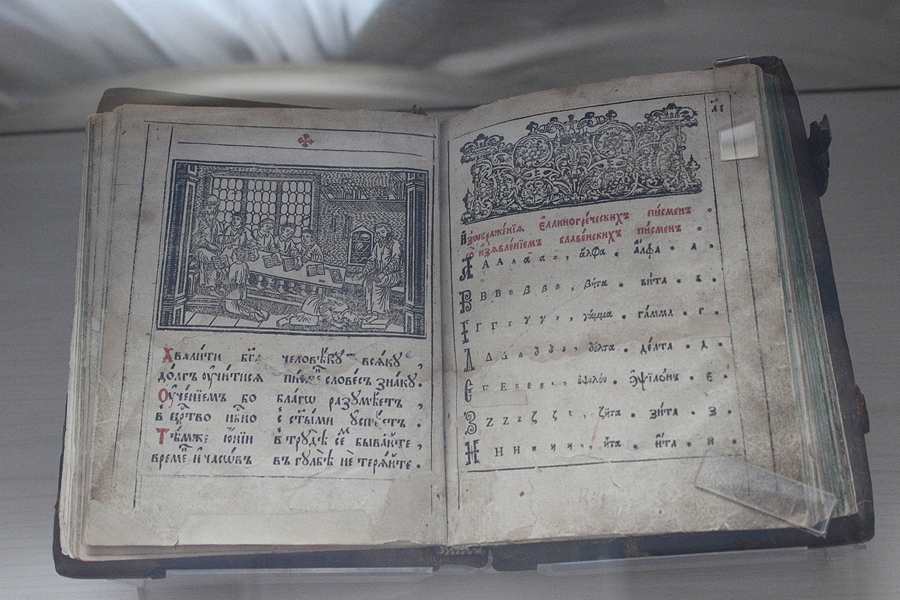 Хвали́ти бг҃а человѣ́кꙋ всѧ́кꙋ,
до́лгъ ᲂу҆чи́тисѧ пи́сменъ слове́съ зна́кꙋ.
Оу҆че́нїемъ бо бла́гѡ разꙋмѣ́етъ,
в црⷭ҇тво нбⷭ҇но с ст҃ы́ми ᲂу҆спѣ́етъ.
Тѣ́мже ю҆́нїи в трꙋдѣ́ сѐ быва́йте,
време́нъ и҆ часѡ́въ въ гꙋльбѣ̀ не терѧ́йте.
л҃і
И҆з̾ѡбраже́нїѧ є҆ллиногре́ческихъ пи́сменъ
с̾ и҆з̾ѧвле́нїемъ славе́нскихъ пи́сменъ
А Α α ἄλφα. а҆́лфа. а.
В Β β βῆτα. ви́та. в.
Г Γ γ γάμμα. га́мма. г.
Д Δ δ δέλτα. де́лта. д.
Є Ε ε ἐψιλόν. э҆ѱїло́нъ. є.
З Ζ ζ ζῆτα. зи́та. з.
И Η η ἦτα. и҆́та. и.